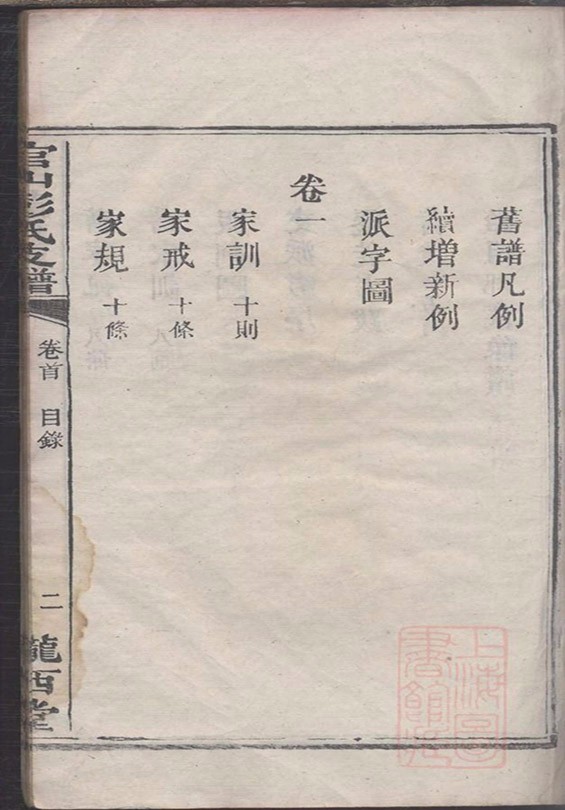 舊譜凡例
續增新例
派字圖
卷一
家訓 十則
家戒 十條
家規 十條
官山彭氏支譜
卷首 目錄
二
隴西堂
上海圖書館藏